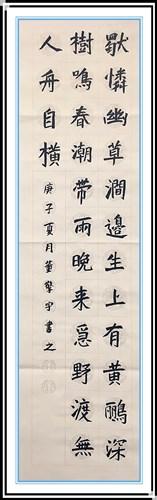 獨憐幽草澗邊生上有黄鸝深
樹鳴春潮带雨晚来急野渡無
人舟自横
庚子夏月董擎宇書之